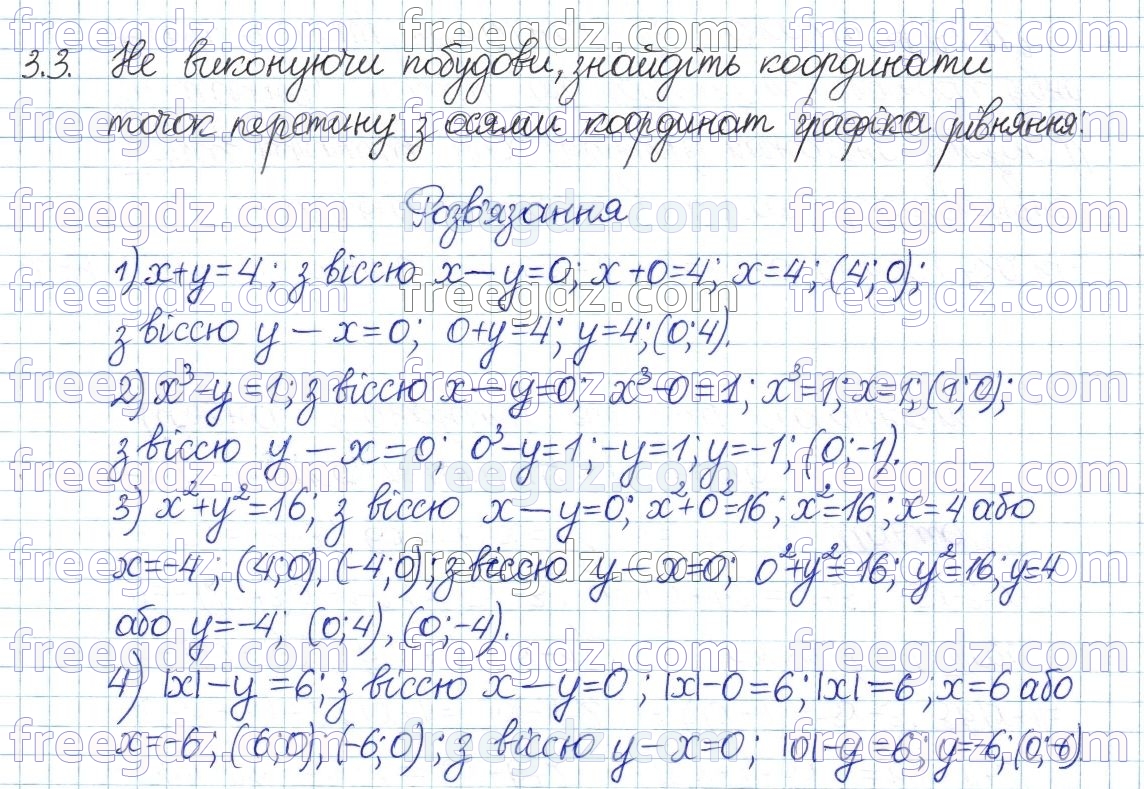 3.3. Не виконуючи побудови, знайдіть координати
точок перетину з осями координат графіка рівняння:
Розв'язання
1) x+y=4; з віссю x — y=0; x+0=4; x=4; (4; 0);
з віссю y — x=0; 0+y=4; y=4; (0; 4).
2) x³-y=1; з віссю x — y=0; x³-0=1; x³=1; x=1; (1; 0);
з віссю y — x=0; 0³-y=1; -y=1; y=-1; (0; -1).
3) x²+y²=16; з віссю x — y=0; x²+0²=16; x²=16; x=4 або
x=-4; (4; 0), (-4; 0); з віссю y — x=0; 0²+y²=16; y²=16; y=4
або y=-4; (0; 4), (0; -4).
4) |x|-y=6; з віссю x — y=0; |x|-0=6; |x|=6; x=6 або
x=-6; (6; 0); (-6; 0); з віссю y — x=0; |0|-y=6; y=-6; (0; -6).
freegdz.com